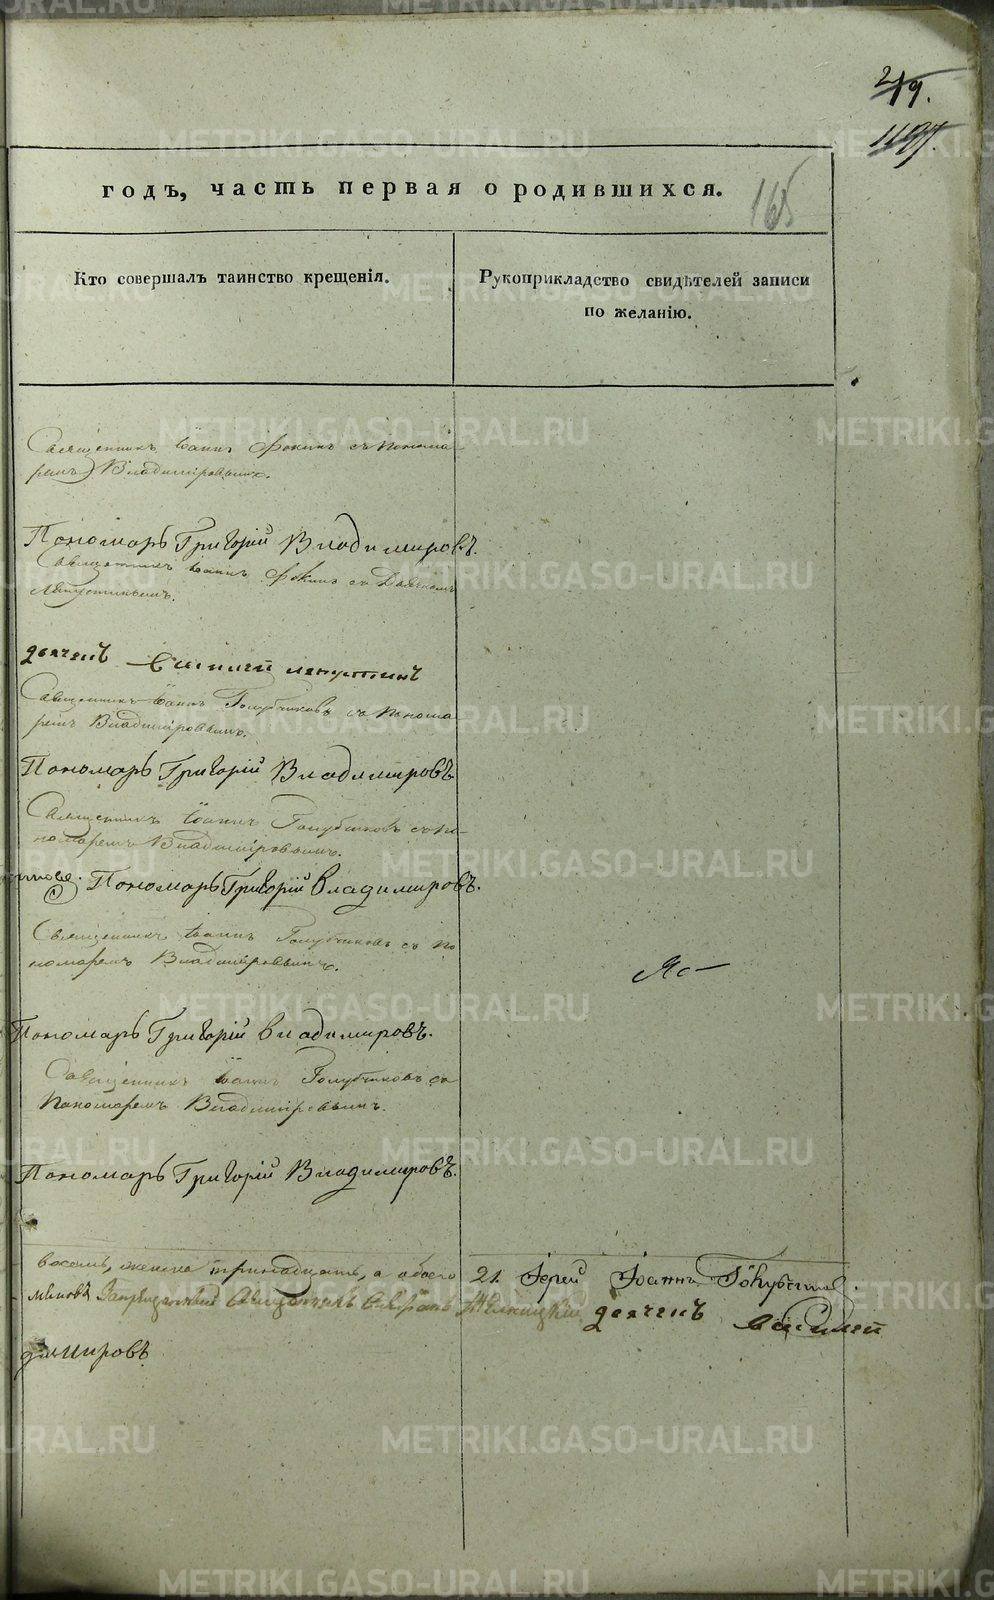 219.
1197.
165
годъ, часть первая о родившихся.
Кто совершалъ таинство крещенія.
Рукоприкладство свидѣтелей записи
по желанію.
Священникъ Іоаннъ Фокинъ съ Понома-
ремъ Владиміровымъ.
Пономарь Григорій Владимировъ.
Священникъ Іоаннъ Фокинъ съ Дьячкомъ
Лапустинымъ.
дьячекъ Василей лапустинъ
Священникъ Іоаннъ Голубчиковъ съ Понома
ремъ Владиміровымъ.
Пономарь Григорій Владимировъ
Священникъ Іоаннъ Голубчиковъ съ по-
номаремъ Владиміровымъ.
Пономарь Григорій Владимировъ.
Священникъ Іоаннъ Голубчиковъ съ по
номаремъ Владиміровымъ.
Пономарь Григорій Владимировъ.
Священникъ Іоаннъ Голубчиковъ съ
Пономаремъ Владиміровымъ.
Пономарь Григорій Владимировъ.
восемь, женска тринадцать, а обоего 21. Іерей Іоаннъ Голубчиковъ.
Священникъ дьячекъ Василей
димировъ
METRIKI.GASO-URAL.RU